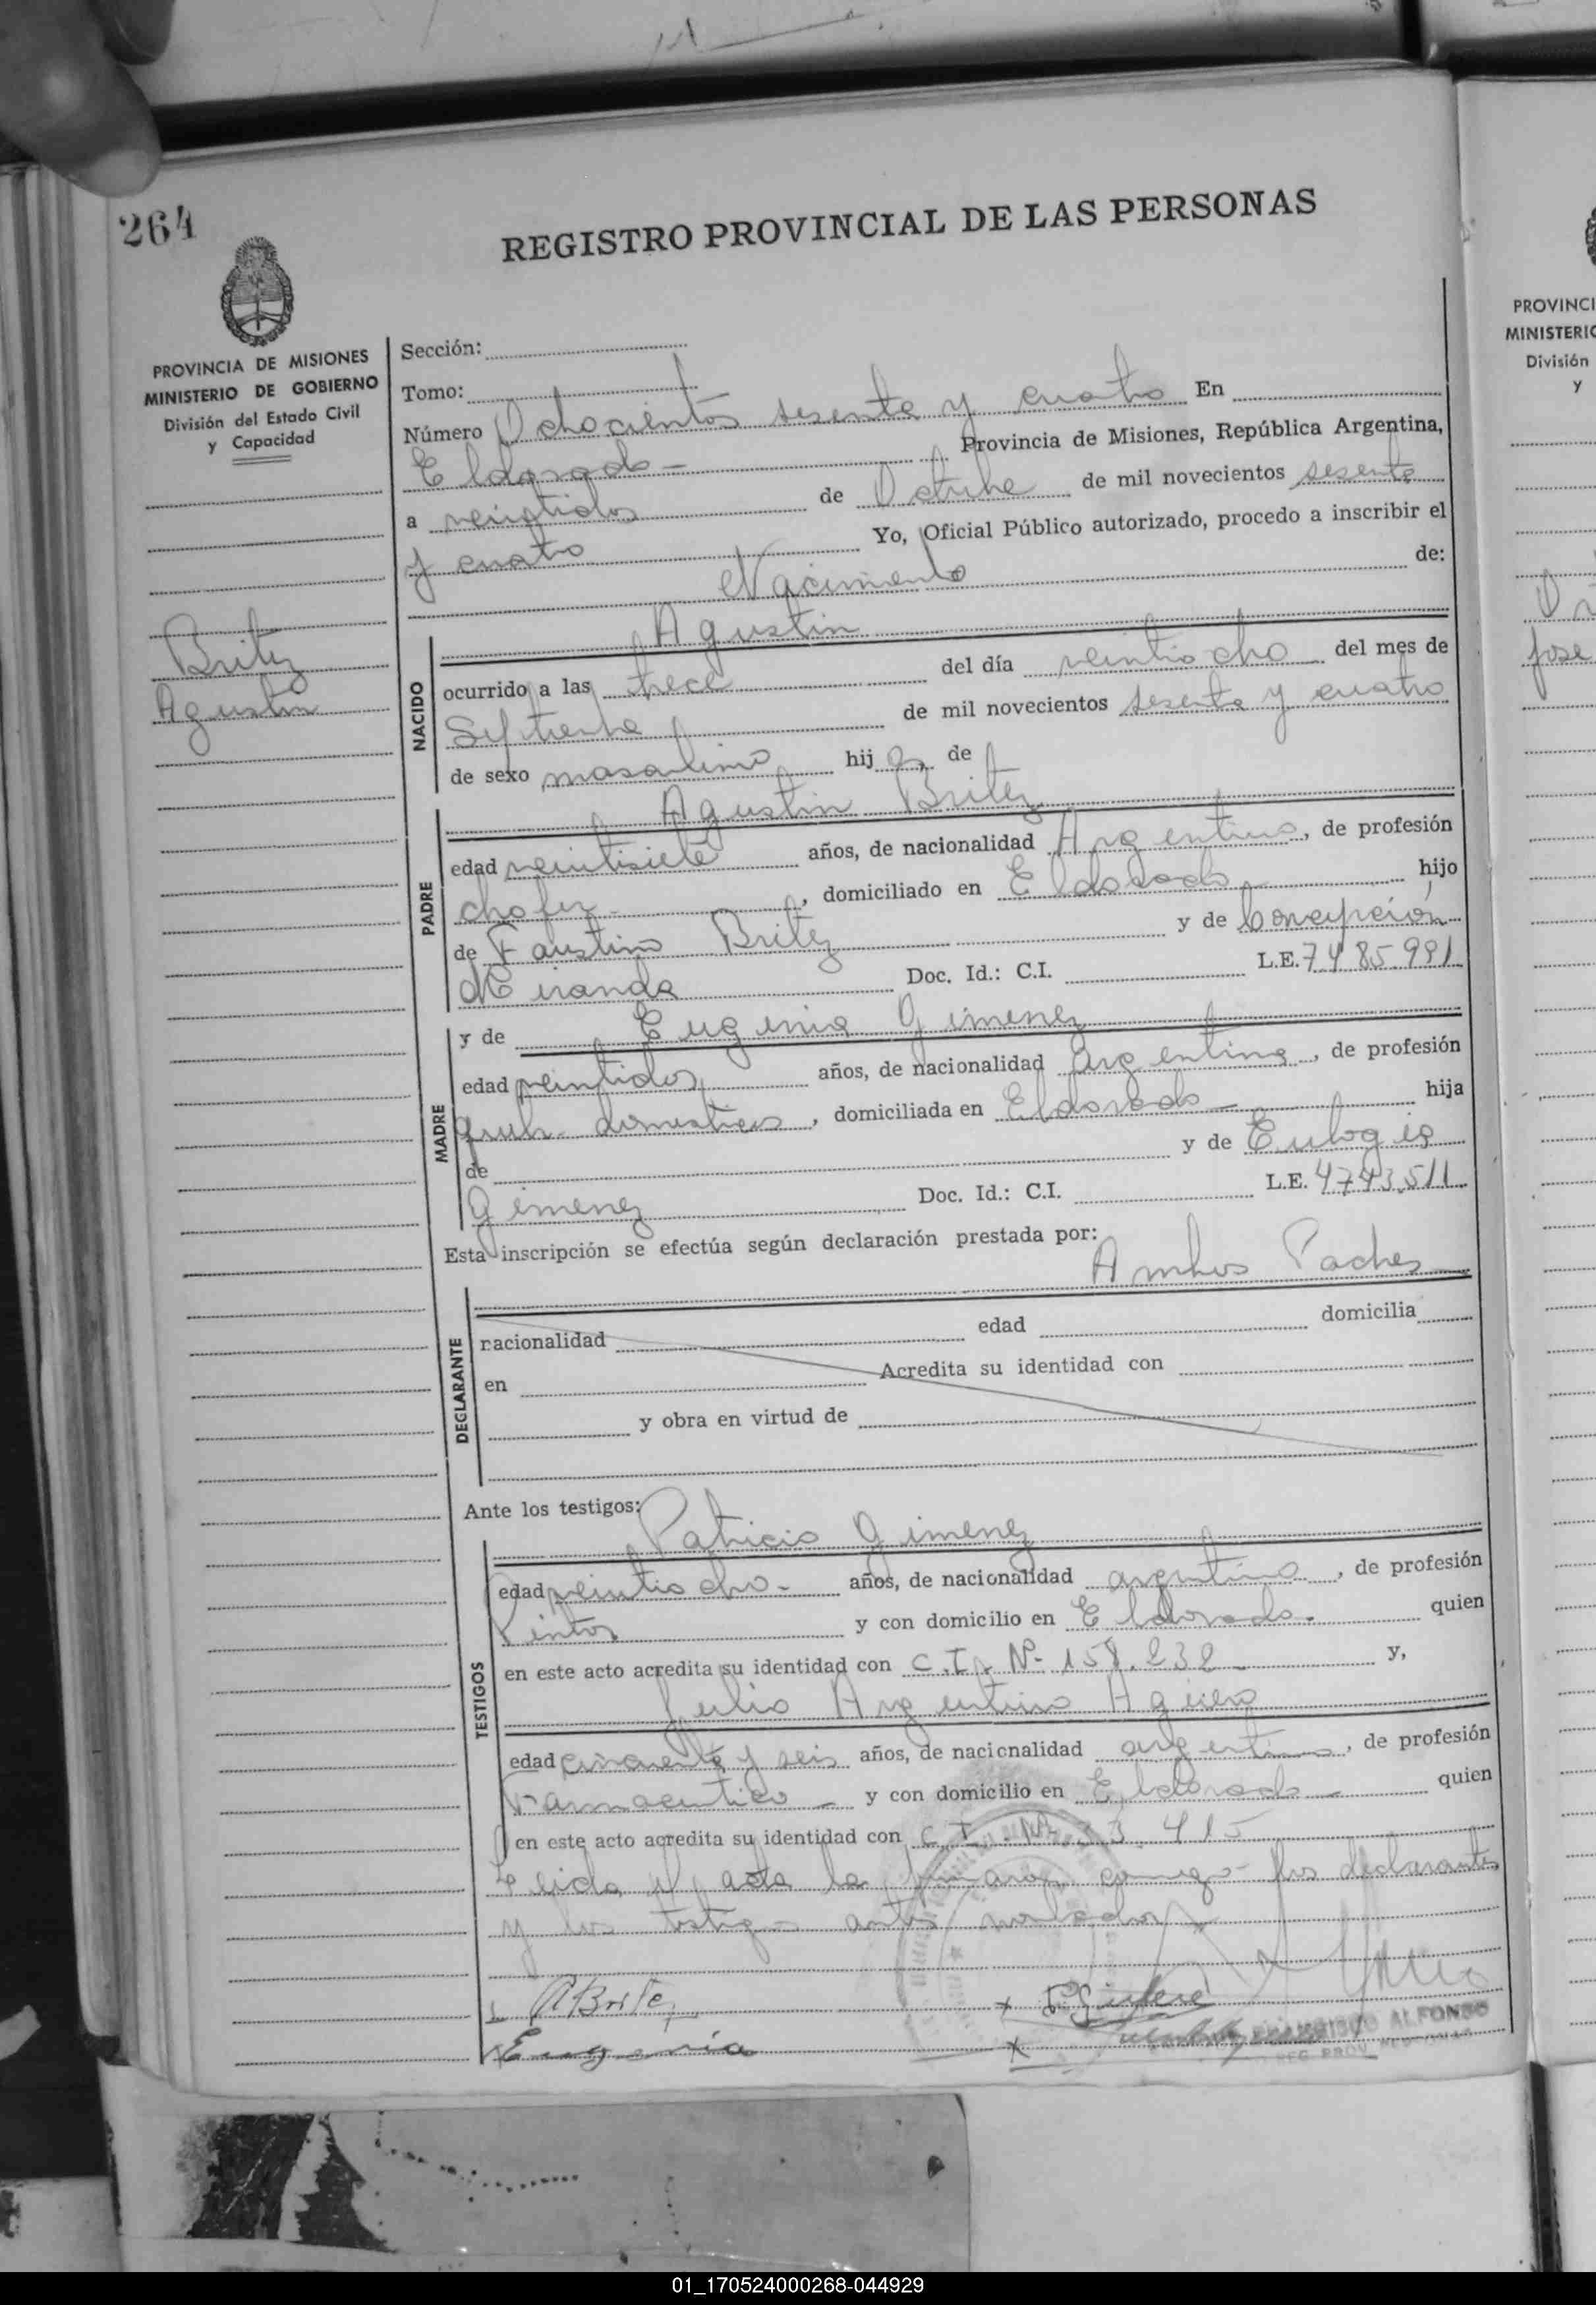 264
REGISTRO PROVINCIAL DE LAS PERSONAS
PROVINCIA DE MISIONES
MINISTERIO DE GOBIERNO
División del Estado Civil
y Capacidad
Britez
Agustin
Sección:
Tomo:
Número Ochocientos sesenta y cuatro En
Eldorado - Provincia de Misiones, República Argentina,
a veintidos de Octubre de mil novecientos sesenta
y cuatro Yo, Oficial Público autorizado, procedo a inscribir el
Nacimiento de:
Agustin
NACIDO
ocurrido a las trece del día veintiocho del mes de
Septiembre de mil novecientos sesenta y cuatro
de sexo masculino hijo de
Agustin Britez
PADRE
edad veintisiete años, de nacionalidad Argentino, de profesión
chofer, domiciliado en Eldorado hijo
de Faustino Britez y de Concepción
Miranda Doc. Id.: C.I. L.E. 7485.991
y de Eugenia Gimenez
MADRE
edad veintidos años, de nacionalidad Argentina, de profesión
queh. domesticos, domiciliada en Eldorado - hija
de y de Eulogia
Gimenez Doc. Id.: C.I. L.E. 4743.511
Esta inscripción se efectúa según declaración prestada por:
Ambos Padres
DECLARANTE
nacionalidad edad domicilia
en Acredita su identidad con
y obra en virtud de
Ante los testigos:
Patricio Gimenez
TESTIGOS
edad veintiocho - años, de nacionalidad argentino, de profesión
Pintor y con domicilio en Eldorado - quien
en este acto acredita su identidad con C.I. Nº 158.232 - y,
Julio Argentino Agüero
edad cincuenta y seis años, de nacionalidad argentino, de profesión
Farmaceutico - y con domicilio en Eldorado - quien
en este acto acredita su identidad con C.I. Nº 33.415
Leida el acta la firmaron conmigo los declarantes
y los testigos antes nombrados
A Britez
Eugenia
FRANCISCO ALFONSO
PROVINCI
MINISTERIO
División
y
Jose
01_170524000268-044929